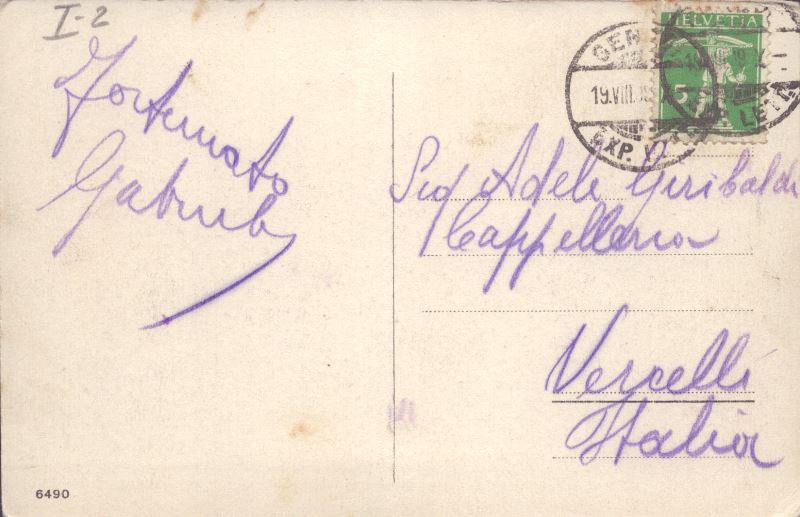 I-2
Fortunato
HELVETIA
5
19.VIII.
EXP. LETT
Sig Adele Giribaldi
Cappellaria
Vercelli
Italia
6490